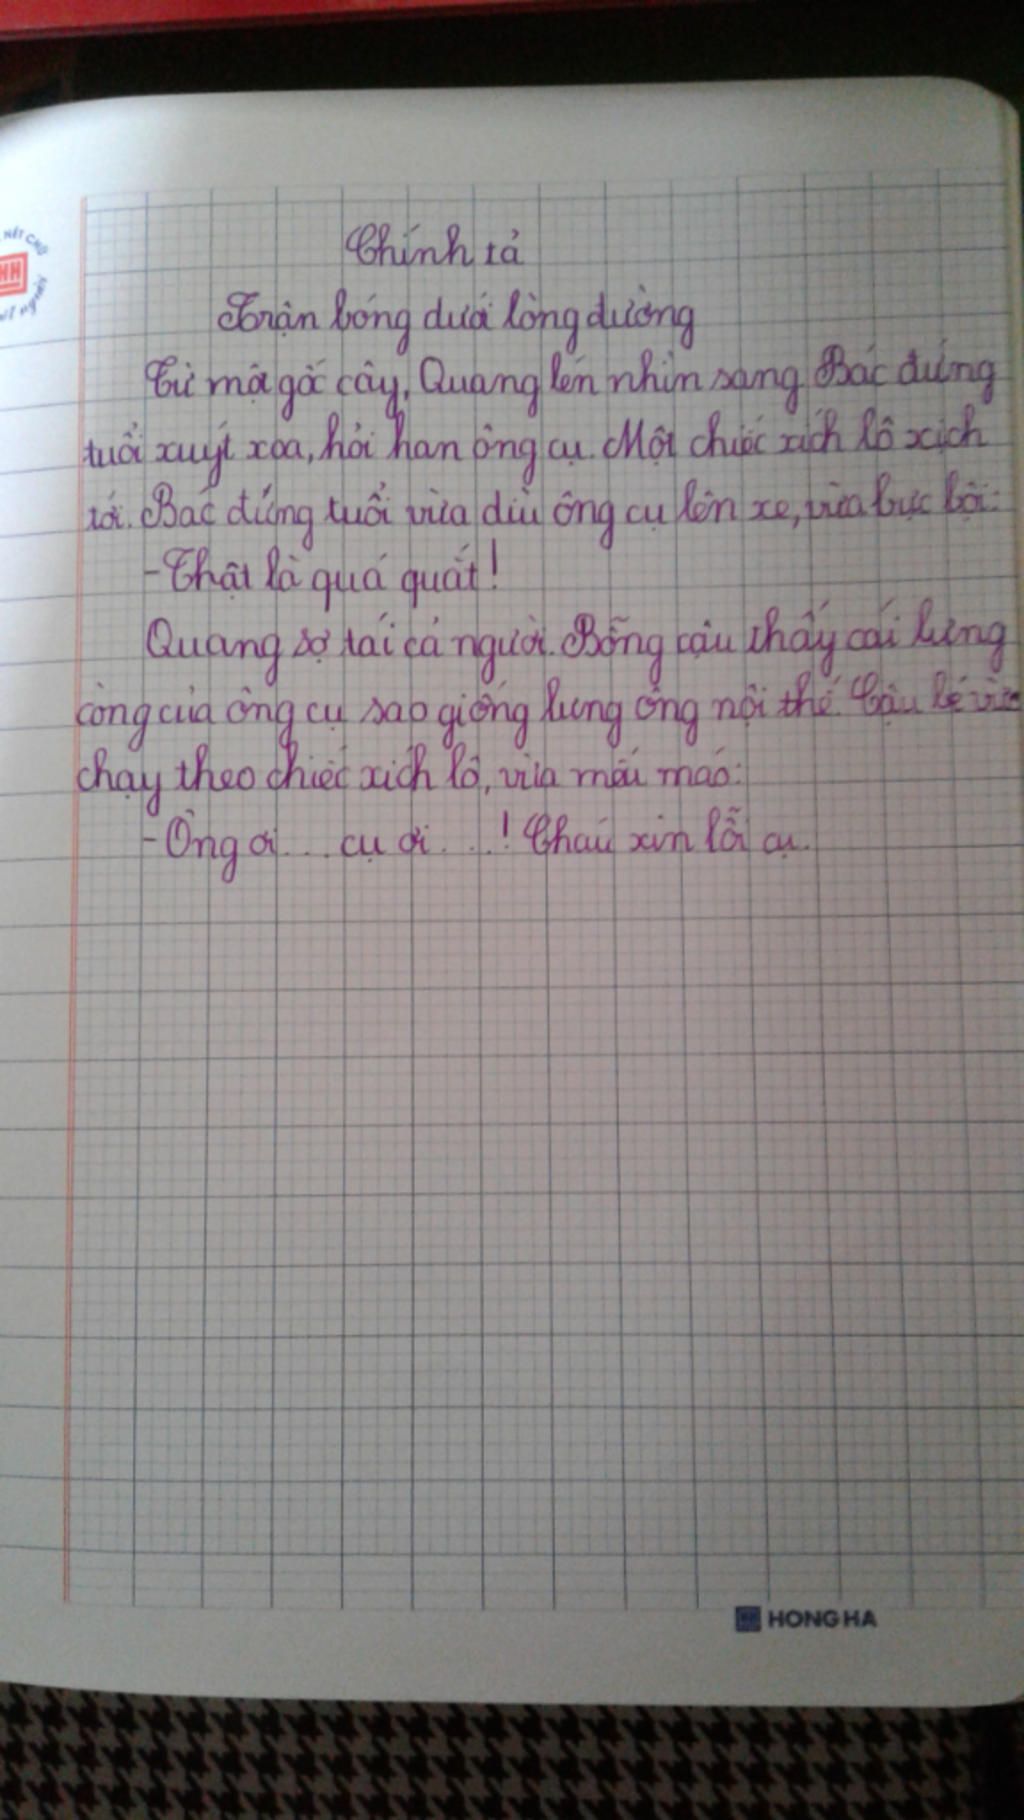 NÉT CHỮ
HH
NẾT NGƯỜI
Chính tả
Trận bóng dưới lòng đường
Từ một gốc cây, Quang lén nhìn sang. Bác đứng
tuổi xuýt xoa, hỏi han ông cụ. Một chiếc xích lô xịch
tới. Bác đứng tuổi vừa dìu ông cụ lên xe, vừa bực bội:
- Thật là quá quắt!
Quang sợ tái cả người. Bỗng cậu thấy cái lưng
còng của ông cụ sao giống lưng ông nội thế. Cậu bé vừa
chạy theo chiếc xích lô, vừa mếu máo:
- Ông ơi... cụ ơi...! Cháu xin lỗi cụ.
HONG HA